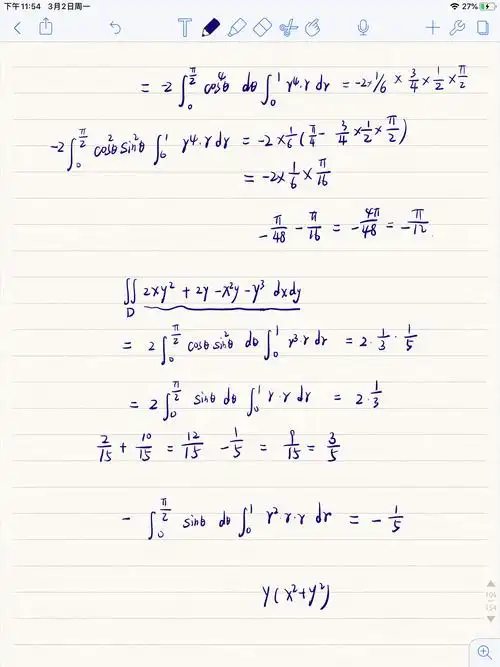 下午11:54 3月2日周一 27%
= -2 ∫₀^{π/2} cos⁴θ dθ ∫₀¹ r⁴·r dr = -2×1/6 × 3/4 × 1/2 × π/2
-2∫₀^{π/2} cos²θ sin²θ ∫₀¹ r⁴·r dr = -2×1/6 (π/4 - 3/4 × 1/2 × π/2)
= -2×1/6 × π/16
-π/48 - π/16 = -4π/48 = -π/12
∬_D 2xy² + 2y - x²y - y³ dxdy
= 2∫₀^{π/2} cosθ sin²θ dθ ∫₀¹ r³·r dr = 2·1/3·1/5
= 2∫₀^{π/2} sinθ dθ ∫₀¹ r·r dr = 2·1/3
2/15 + 10/15 = 12/15 - 1/5 = 9/15 = 3/5
- ∫₀^{π/2} sinθ dθ ∫₀¹ r²·r·r dr = -1/5
y(x²+y²)